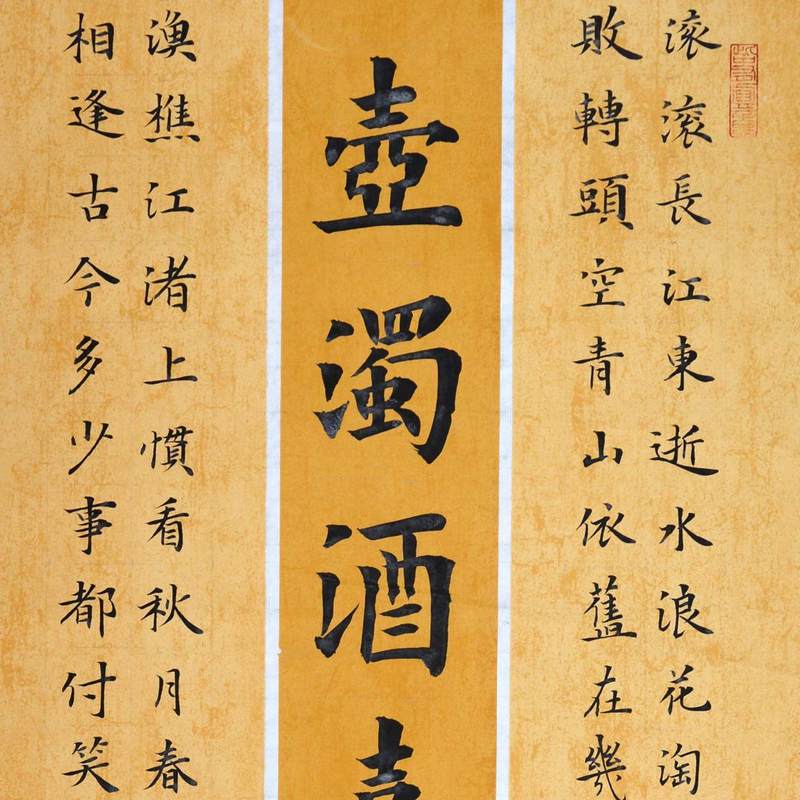 滚滚長江東逝水浪花淘
敗轉頭空青山依舊在幾
壺濁酒
漁樵江渚上慣看秋月春
相逢古今多少事都付笑